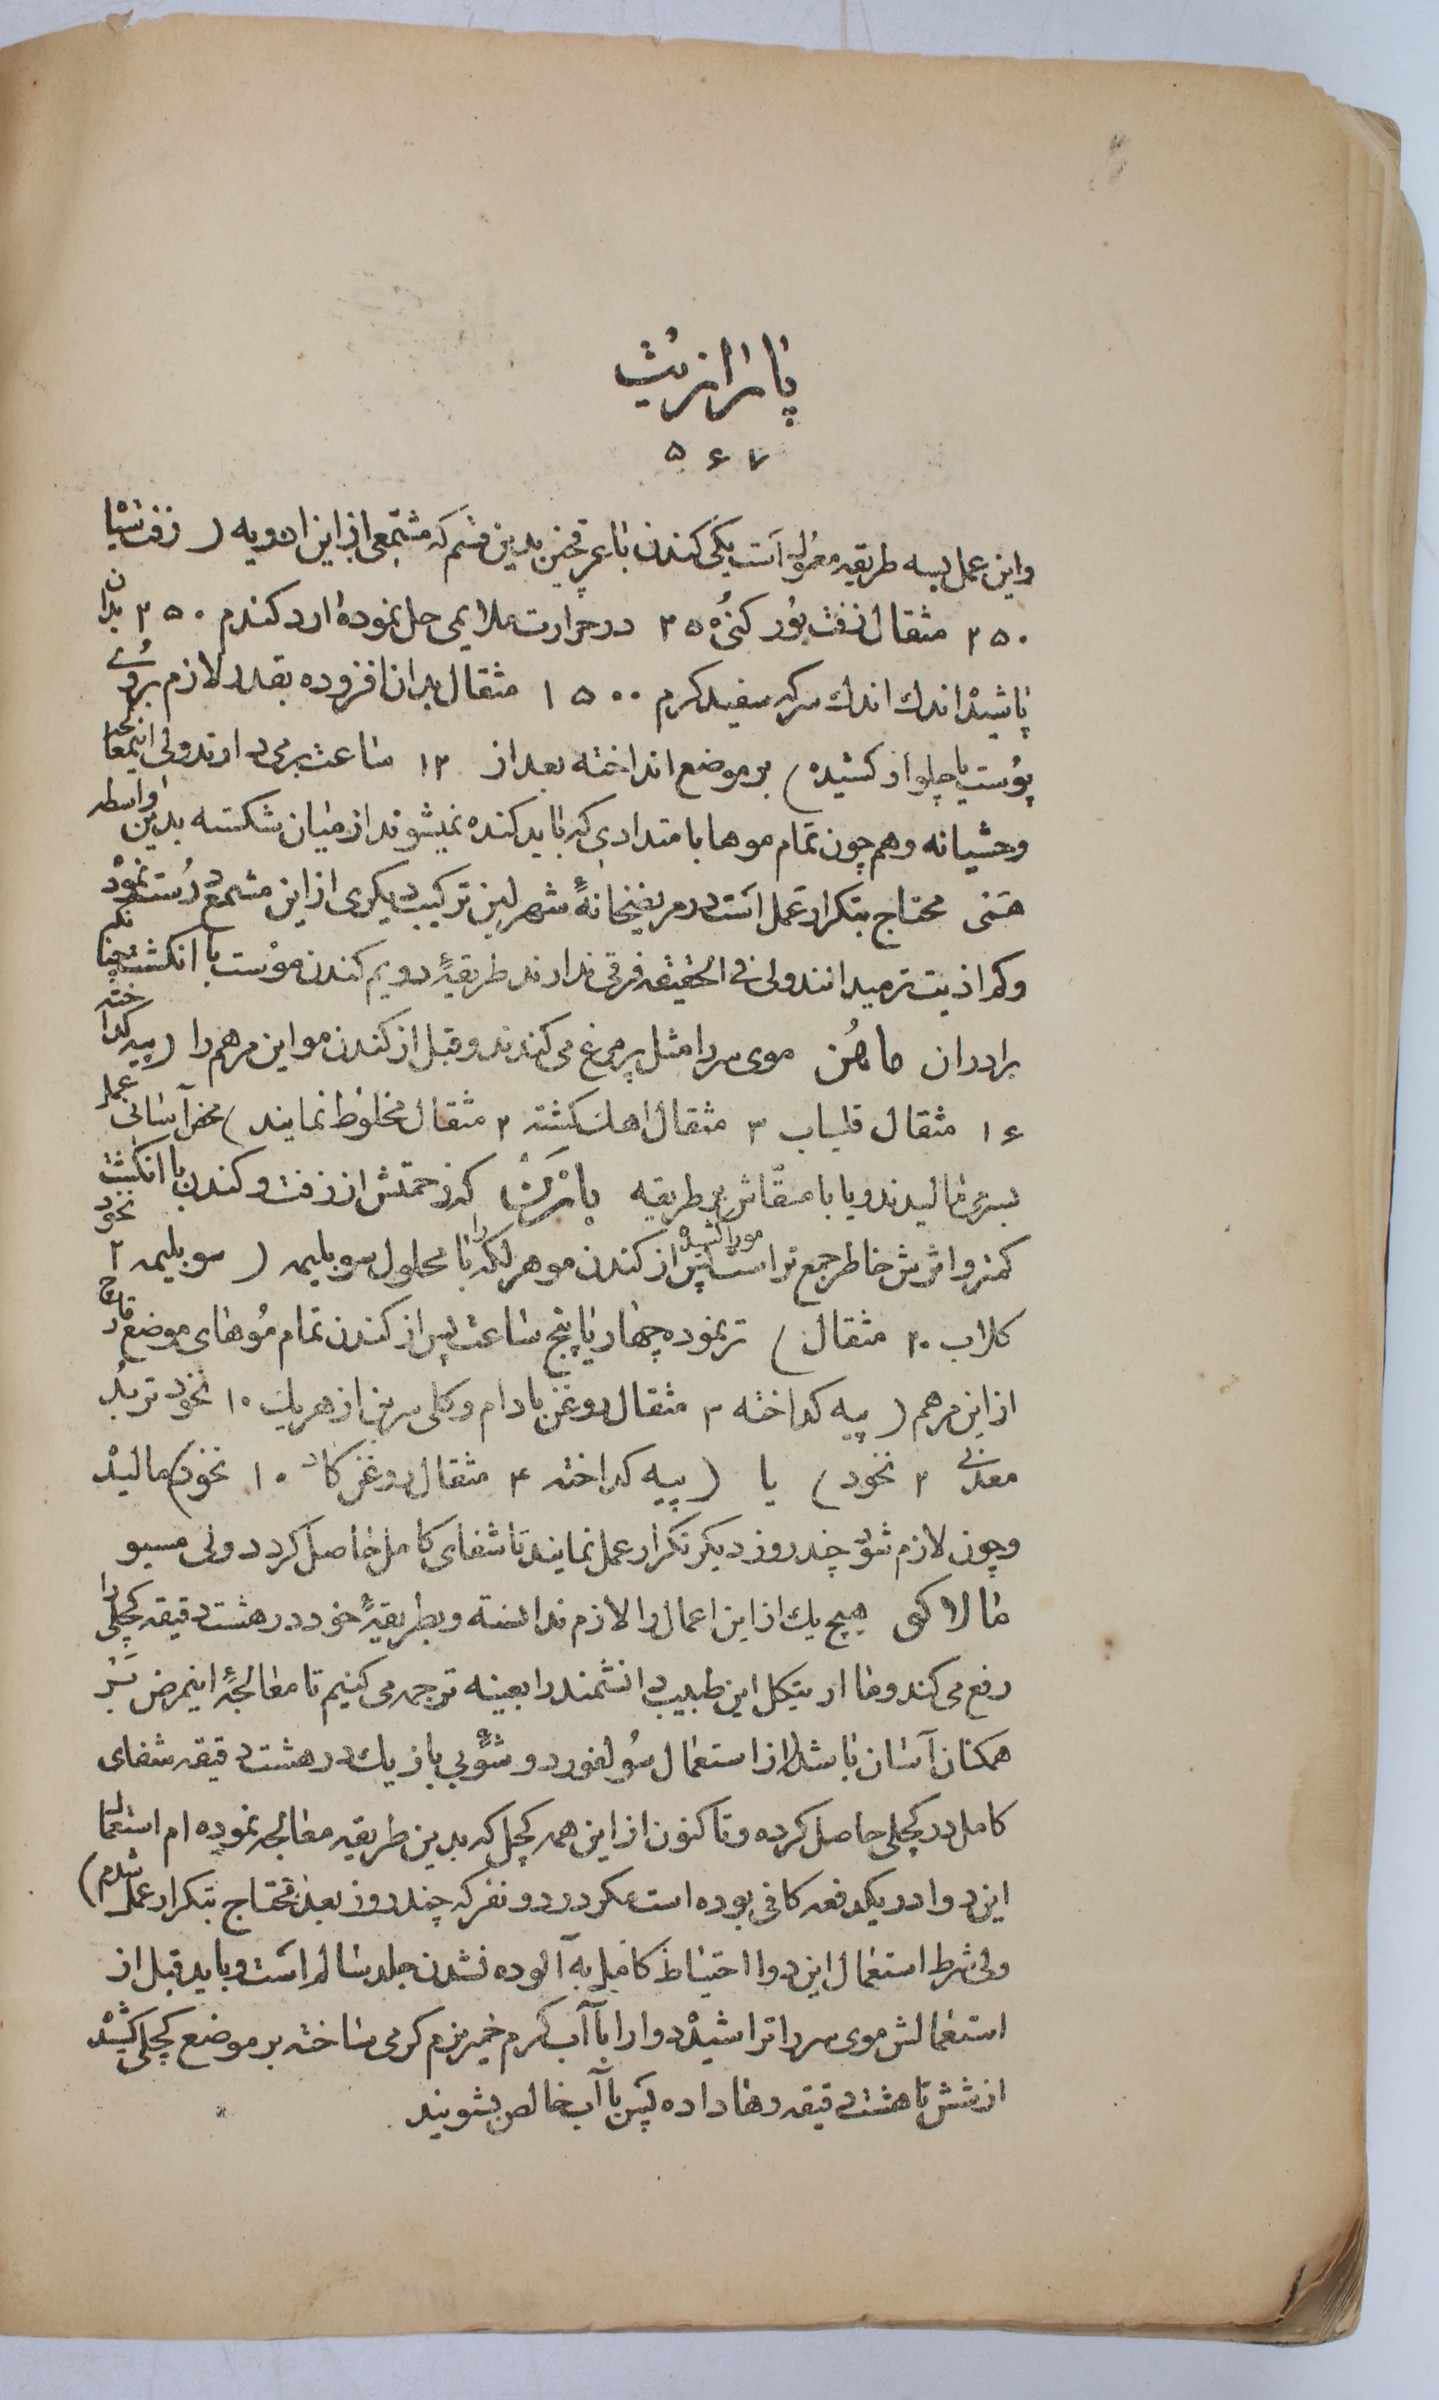 پارازیت
۵۶۷
واین عمل بسه طریقه معمول است یکی کندن باعرقچین بدین قسم که مشمعی از این ادویه (زفت سیاه
۲۵۰ مثقال زفت بور کنی ۲۵۰ در حرارت ملایمی حل نموده ارد کندم ۲۵۰ بدان
پاشیده اندك اندك سرکه سفید کرم ۱۵۰۰ مثقال بدان افزوده بقدر لازم بروی
پوست یا چلوار کشیده) بر موضع انداخته بعد از ۱۲ ساعت برمی دارند ولی اینمعالجه
وحشیانه وهم چون تمام موها بامتدادی که باید کنده نمیشوند از میان شکسته بدین واسطه
هتنی محتاج بتکرار عمل است در مریضخانهٔ شهر لین ترکیب دیکری از این مشمع درست نموده
وکم اذیت تر میدانند ولی فی الحقیقه فرقی ندارند طریقهٔ دویم کندن موست با انکشت چنانکه
برادران ماهن موی سر را مثل پر مرغ می کندند وقبل از کندن مو این مرهم را (پیه کداخته
۱۶ مثقال قلیاب ۳ مثقال اهك کشته ۲ مثقال مخلوط نمایند) محض آسانی عمل
بسر می مالیدند ویا با منقاش بر طریقه بازن که زحمتش از زفت وکندن با انکشت
کمتر واثرش خاطر جمع تر است پس از کندن مو هر لکه را با محلول سوبلیمه (سوبلیمه ۲ نخود
کلاب ۲۰ مثقال) تر نموده چهار یا پنج ساعت پس از کندن تمام موهای موضع قارچ را
از این مرهم (پیه کداخته ۳ مثقال روغن بادام وکلی سرین از هریك ۱۰ نخود تربد
معدنی ۲ نخود) یا (پیه کداخته ۴ مثقال روغن کاد ۱۰ نخود) مالیده
وچون لازم شود چند روز دیکر تکرار عمل نمایند تا شفای کامل حاصل کردد ولی مسیو
مالاکو هیچ یك از این اعمال را لازم ندانسته وبطریقهٔ خود در هشت دقیقه کچلی را
رفع می کند وما ارتیکل این طبیب دانشمند را بعینه ترجمه می کنیم تا معالجهٔ اینمرض بر
همکنان آسان باشد (از استعمال سولفور دوشوبی بازیك در هشت دقیقه شفای
کامل در کچلی حاصل کرده وتاکنون از این همه کچل که بدین طریقه معالجه نموده ام استعمال
این دوا در یکدفعه کافی بوده است مکر در دو نفر که چند روز بعد محتاج بتکرار عمل شدم)
ولی شرط استعمال این دوا احتیاط کامل به آلوده نشدن جلد سالم است وباید قبل از
استعمالش موی سر را تراشیده دوا را با آب کرم خمیر نرم کرمی ساخته بر موضع کچلی کشیده
از شش تا هشت دقیقه وها داده پس با آب خالص بشویند